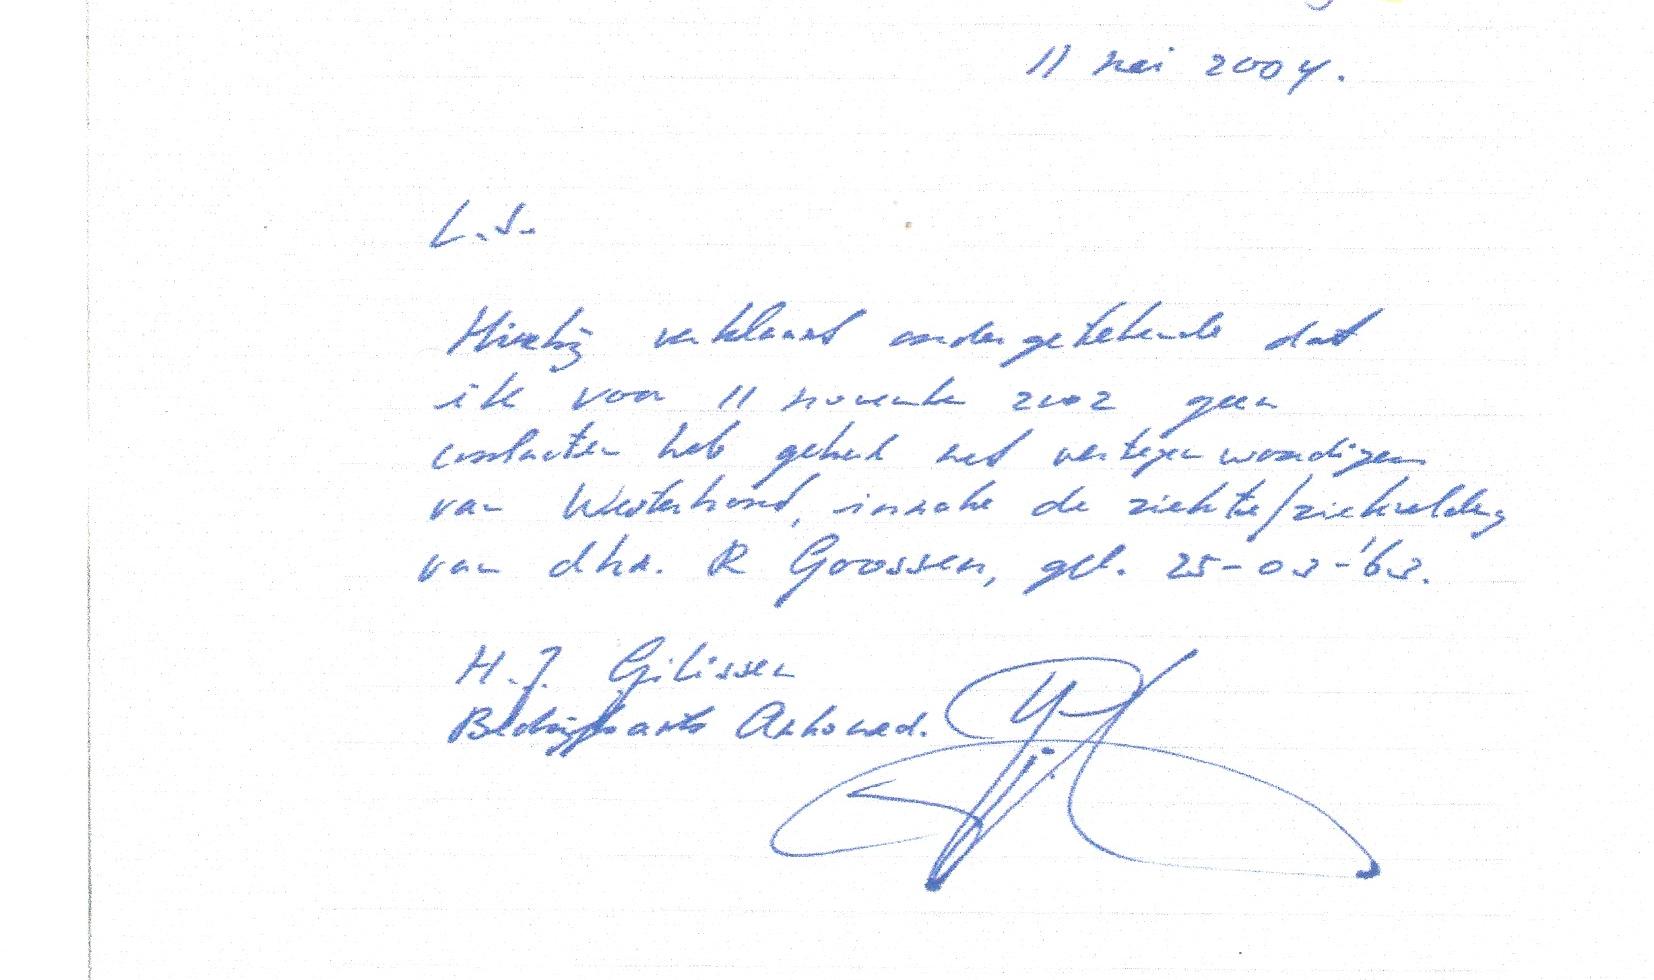 11 mei 2004.
L.S.
Hierbij verklaart ondergetekende dat
ik voor 11 november 2002 geen
contacten heb gehad met vertegenwoordigers
van Westerhond, inzake de ziekte/ziekmelding
van dhr. R Goossen, geb. 25-03-'63.
H.J. Gilissen
Bedrijfsarts Arbomed.